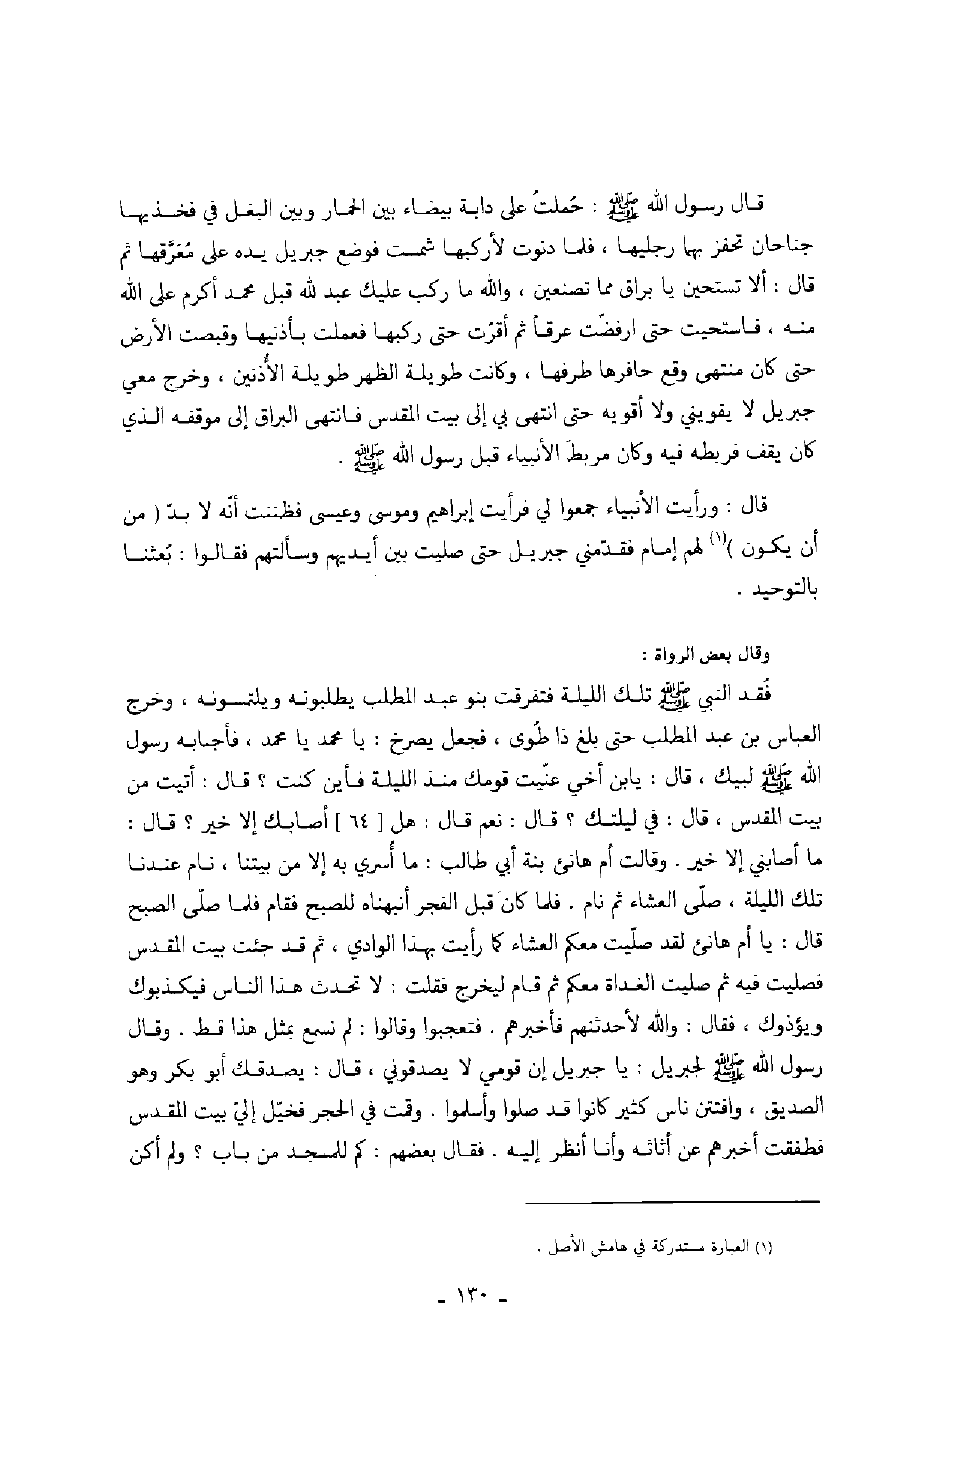 قال رسول الله ﷺ : حُملتُ على دابة بيضاء بين الحمار وبين البغل في فخذيها
جناحان تحفز بها رجليها ، فلما دنوت لأركبها شمست فوضع جبريل يده على مُعَرَّقها ثم
قال : ألا تستحين يا براق مما تصنعين ، والله ما ركب عليك عبد لله قبل محمد أكرم على الله
منه ، فاستحيت حتى ارفضّت عرقاً ثم أقرّت حتى ركبها فعملت بأذنيها وقبصت الأرض
حتى كان منتهى وقع حافرها طرفها ، وكانت طويلة الظهر طويلة الأُذنين ، وخرج معي
جبريل لا يفويني ولا أفويه حتى انتهى بي إلى بيت المقدس فانتهى البراق إلى موقفه الذي
كان يقف فربطه فيه وكان مربطَ الأنبياء قبل رسول الله ﷺ .
قال : ورأيت الأنبياء جمعوا لي فرأيت إبراهيم وموسى وعيسى فظننت أنّه لا بدّ ( من
أن يكون )(١) لهم إمام فقدّمني جبريل حتى صليت بين أيديهم وسألتهم فقالوا : بُعثنا
بالتوحيد .
وقال بعض الرواة :
فُقد النبي ﷺ تلك الليلة فتفرقت بنو عبد المطلب يطلبونه ويلتمسونه ، وخرج
العباس بن عبد المطلب حتى بلغ ذا طُوى ، فجعل يصرخ : يا محمد يا محمد ، فأجابه رسول
الله ﷺ لبيك ، قال : يابن أخي عنّيت قومك منذ الليلة فأين كنت ؟ قال : أتيت من
بيت المقدس ، قال : في ليلتك ؟ قال : نعم قال : هل [ ٦٤ ] أصابك إلا خير ؟ قال :
ما أصابني إلا خير . وقالت أم هانئ بنة أبي طالب : ما أُسري به إلا من بيتنا ، نام عندنا
تلك الليلة ، صلّى العشاء ثم نام . فلما كان قبل الفجر أنبهناه للصبح فقام فلما صلّى الصبح
قال : يا أم هانئ لقد صلّيت معكم العشاء كما رأيت بهذا الوادي ، ثم قد جئت بيت المقدس
فصليت فيه ثم صليت الغداة معكم ثم قام ليخرج فقلت : لا تحدث هذا الناس فيكذبوك
ويؤذوك ، فقال : والله لأحدثنهم فأخبرهم . فتعجبوا وقالوا : لم نسمع بمثل هذا قط . وقال
رسول الله ﷺ لجبريل : يا جبريل إن قومي لا يصدقوني ، قال : يصدقك أبو بكر وهو
الصديق ، وافتتن ناس كثير كانوا قد صلوا وأسلموا . وقت في الحجر فخيّل إليّ بيت المقدس
فطفقت أخبرهم عن أثاثه وأنا أنظر إليه . فقال بعضهم : كم للمسجد من باب ؟ ولم أكن
(١) العبارة مستدركة في هامش الأصل .
- ١٣٠ -